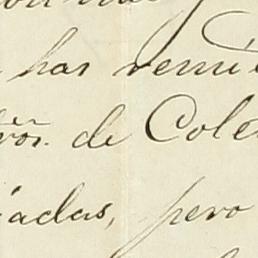 has remi
ñrs. de Cole
iadas, pero